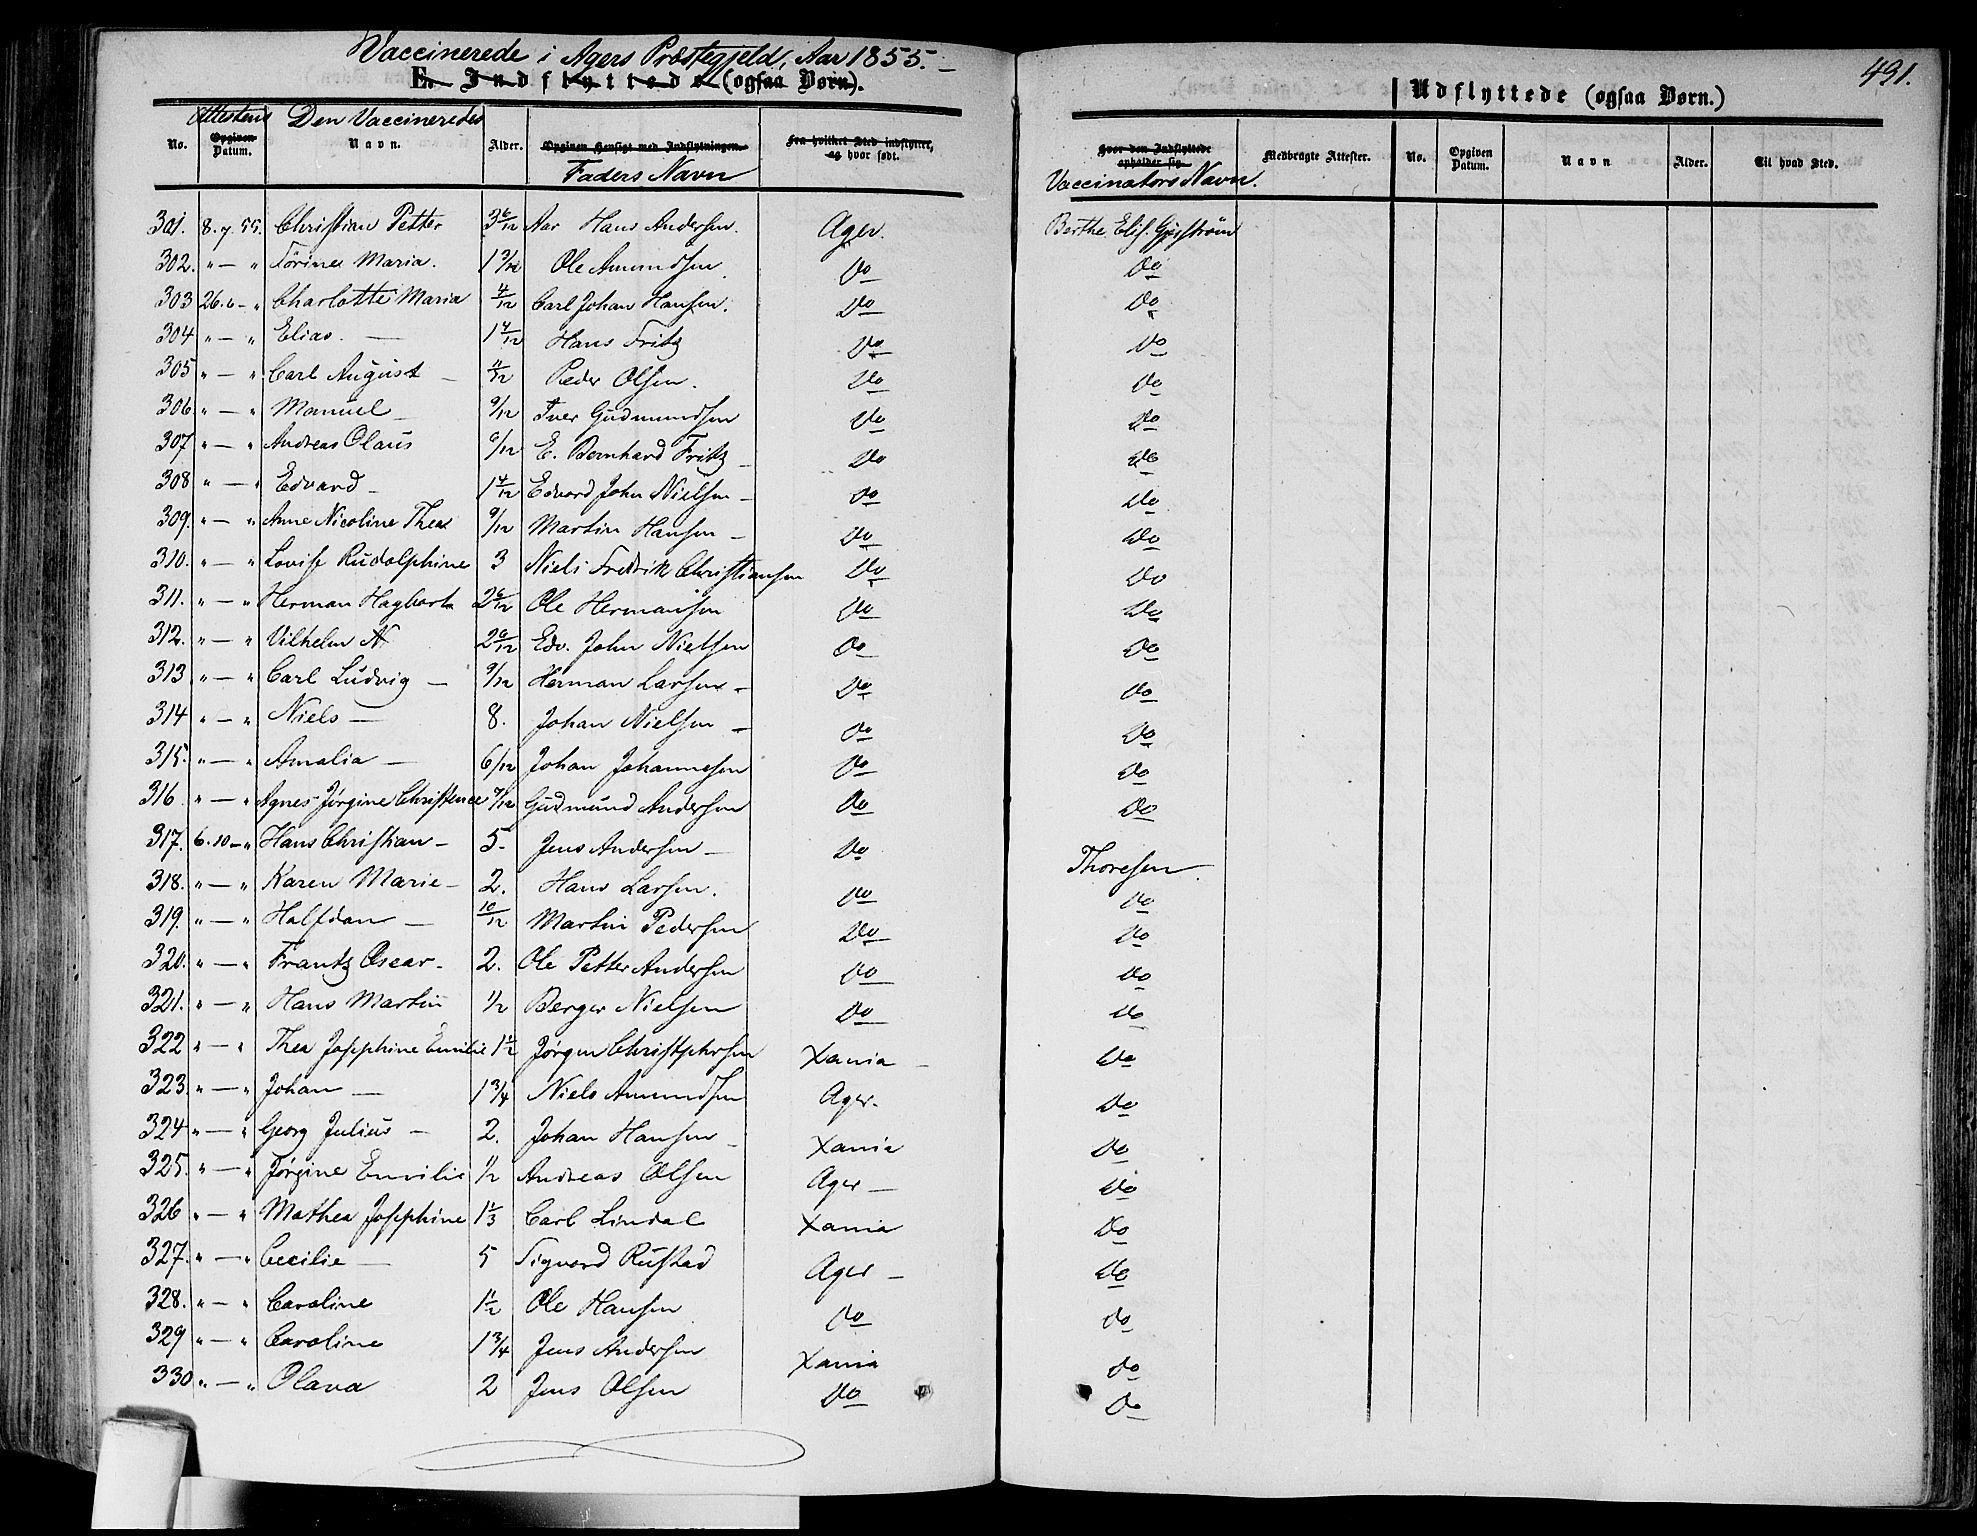 Vaccinerede i Agers Præstegjeld, Aar 1855.
E. Indflyttede (ogsaa Børn).
491.
Udflyttede (ogsaa Børn.)
No. Attestens Opgiven Datum. Den Vaccineredes Navn. Alder. Opgiven Hensigt med Indflytningen. Faders Navn Fra hvilket Sted indflytter, og hvor født. Hvor den Indflyttede opholder sig. Vaccinators Navn. Medbragte Attester. No. Opgiven Datum. Navn Alder. Til hvad Sted.
301. 8. 7. 55. Christian Petter 3 6/12 Aar Hans Andersen. Ager. Berthe Elis.
302. " — " Maria. 1 9/12 Ole Amundsen Do Do
303 26. 6 - " Charlotte Maria 4/12 Carl Johan Hansen. Do Do
304 " — " Elias. — 1 4/12 Hans Fritz Do Do
305 " — " Carl August — 11/12 Peder Olsen. Do Do
306 " — " Manuel — 9/12 Iver Gudmundsen Do Do
307 " — " Andreas Olaus 6/12 E. Bernhard Fritz — Do Do
308 " — " Edvard — 1 4/12 Edvard John Nielsen — Do Do
309. " — " Anne Nicoline Thea 9/12 Martin Hansen — Do Do
310. " — " Lovise Rudolphine 3 Niels Fredrik Christiansen Do Do
311. " — " Herman Hagbart 2 6/12 Ole Hermansen Do Do
312. " — " Vilhelm N. 2 6/12 Edv. John Nielsen Do Do
313 " — " Carl Ludvig — 9/12 Herman Larsen — Do Do
314 " — " Niels — 8. Johan Nielsen — Do Do
315. " — " Amalia — 6/12 Johan Johannesen Do Do
316 " — " Agnes Jørgine Christence 7/12 Gudmund Andersen Do Do
317. 6. 10 — " Hans Christian — 5 - Jens Andersen — Do Thoresen.
318. " — " Karen Marie — 2. Hans Larsen. Do Do
319. " — " Halfdan — 10/12 Martin Pedersen Do Do
320. " — " Frantz Oscar - 2. Ole Petter Andersen Do Do
321. " — " Hans Martin 1/2 Berger Nielsen Do Do
322 " — " Thea Josephine Emilie 1 1/2 Jørgen Christphersen Xania — Do
323. " — " Johan — 1 3/4 Niels Amundsen Ager. Do
324 " — " Georg Julius — 2. Johan Hansen — Xania Do
325. " — " Jørgine Emilie 1/2 Andreas Olsen Ager — Do
326 " — " Mathea Josephine 1 1/3 Carl Lindal Xania Do
327. " — " Cecilie — 5 Sigvard Rustad Ager — Do
328. " — " Caroline 1 1/2 Ole Hansen Do Do
329 " — " Caroline 1 3/4 Jens Andersen Xania Do
330 " — " Olava 2 Jens Olsen Do Do